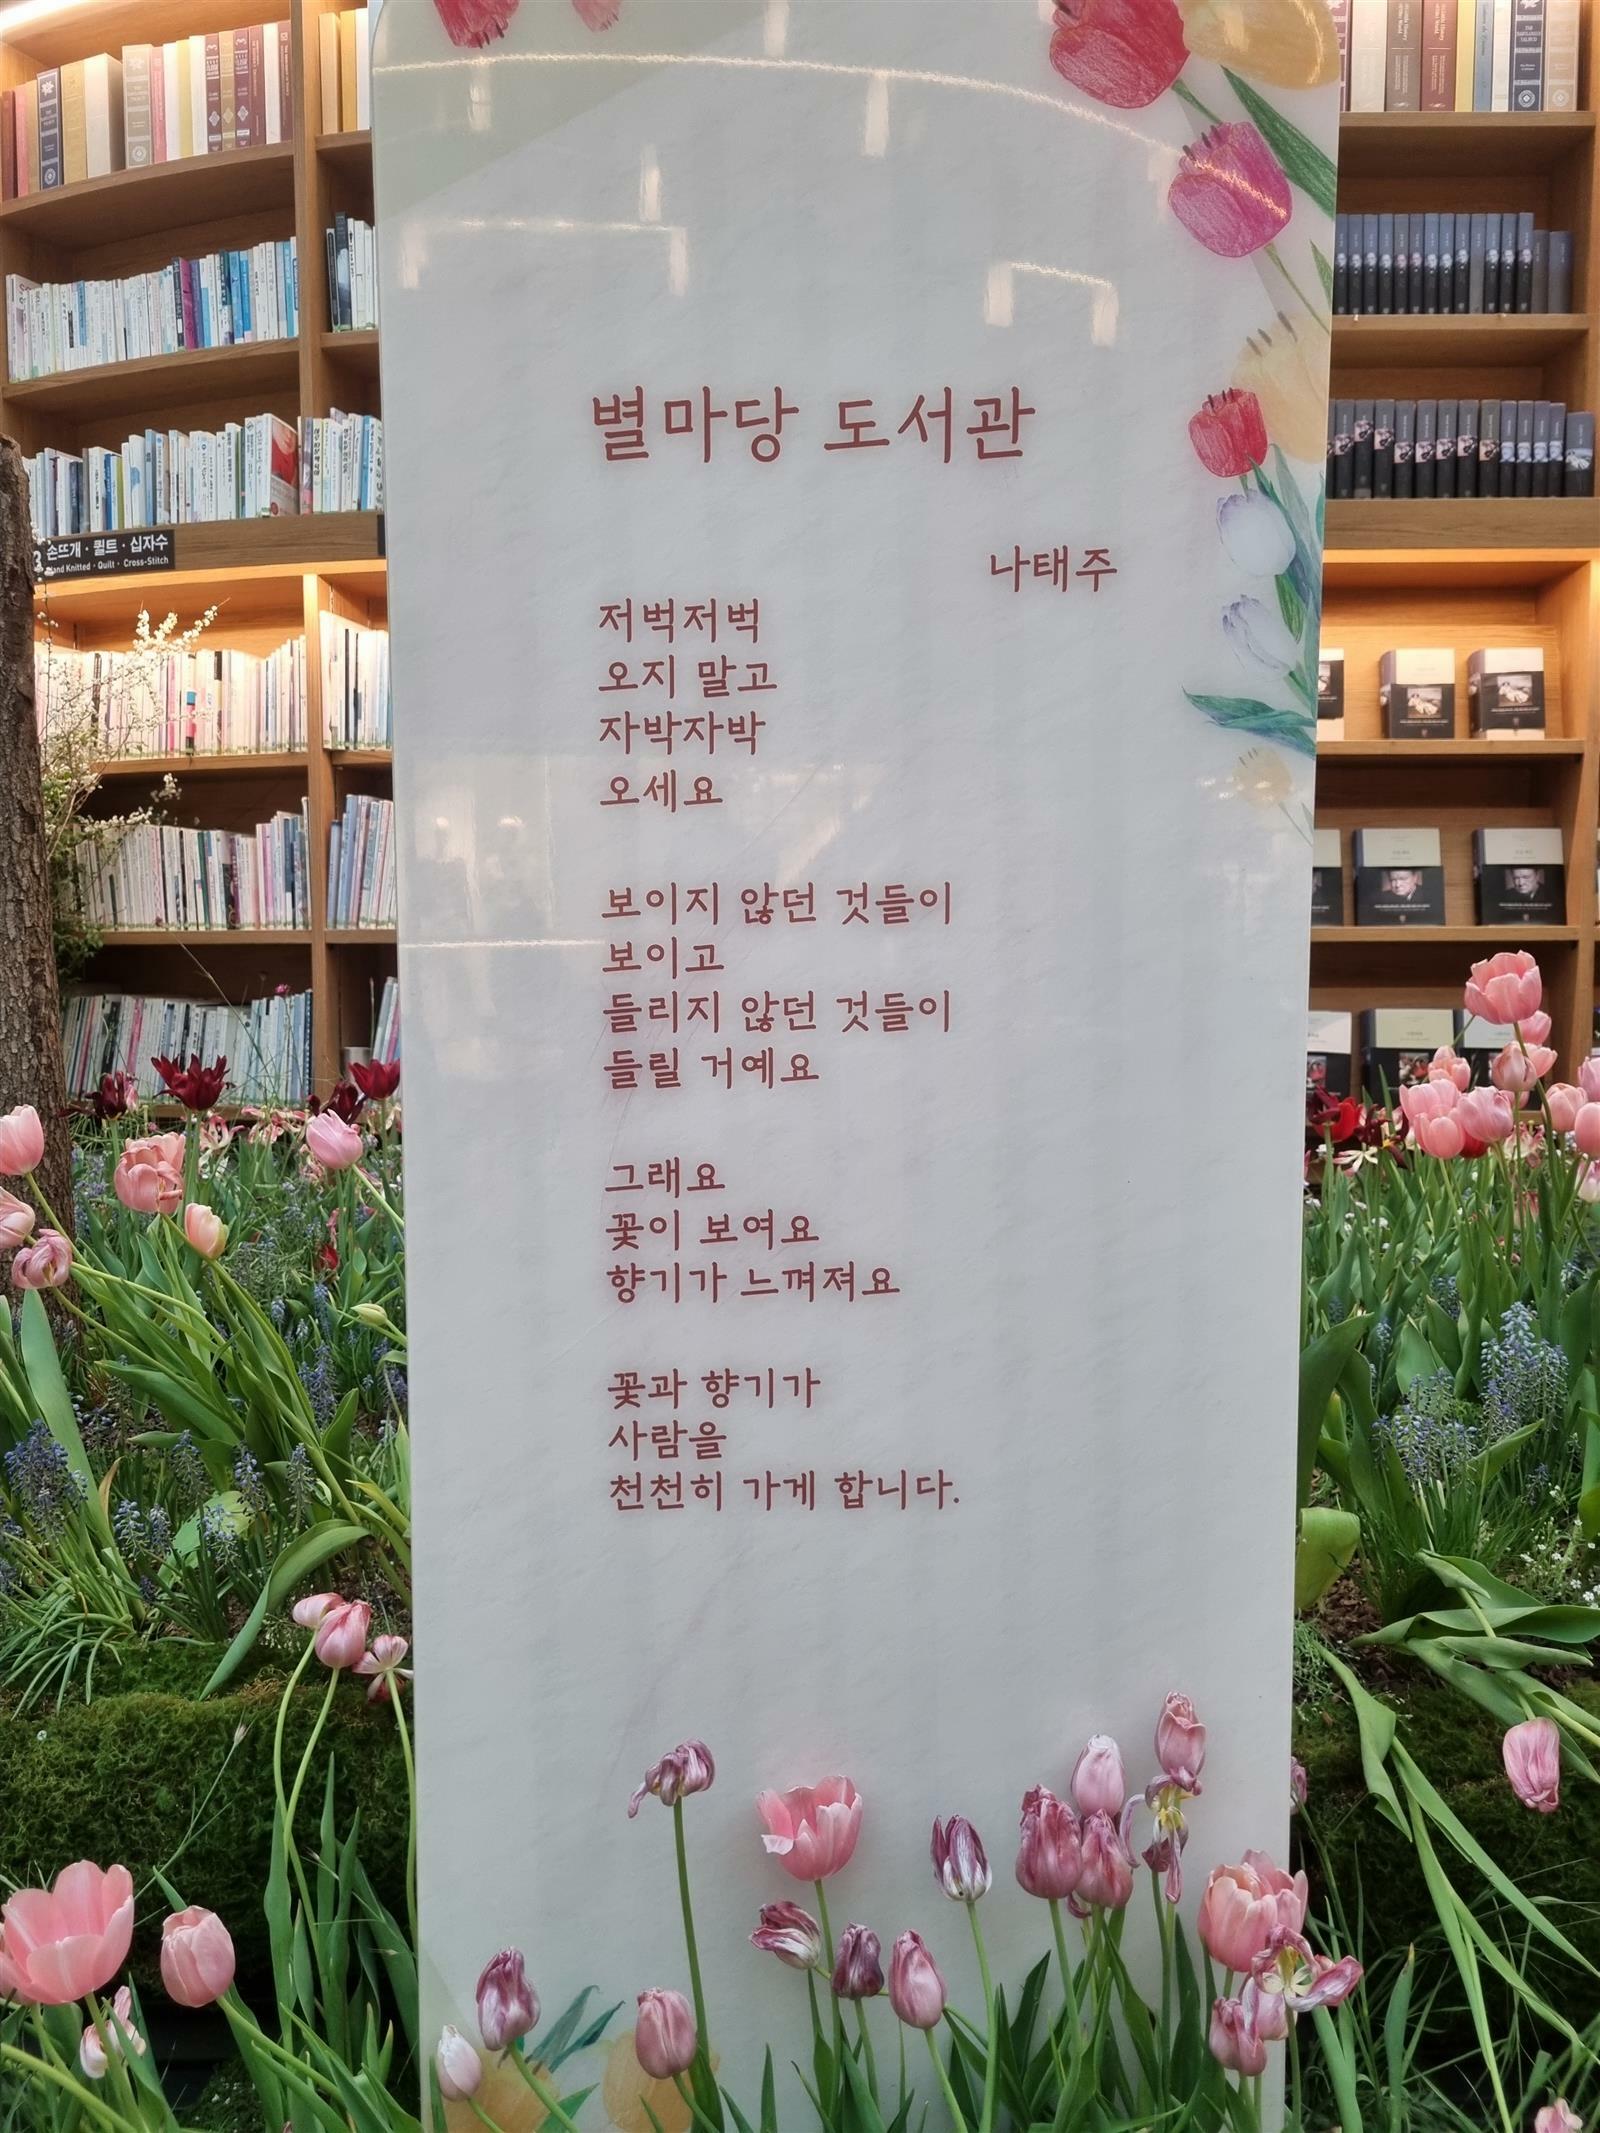 별마당 도서관
나태주
저벅저벅
오지 말고
자박자박
오세요
보이지 않던 것들이
보이고
들리지 않던 것들이
들릴 거예요
그래요
꽃이 보여요
향기가 느껴져요
꽃과 향기가
사람을
천천히 가게 합니다.
손뜨개 · 퀼트 · 십자수
Hand Knitted · Quilt · Cross-Stitch